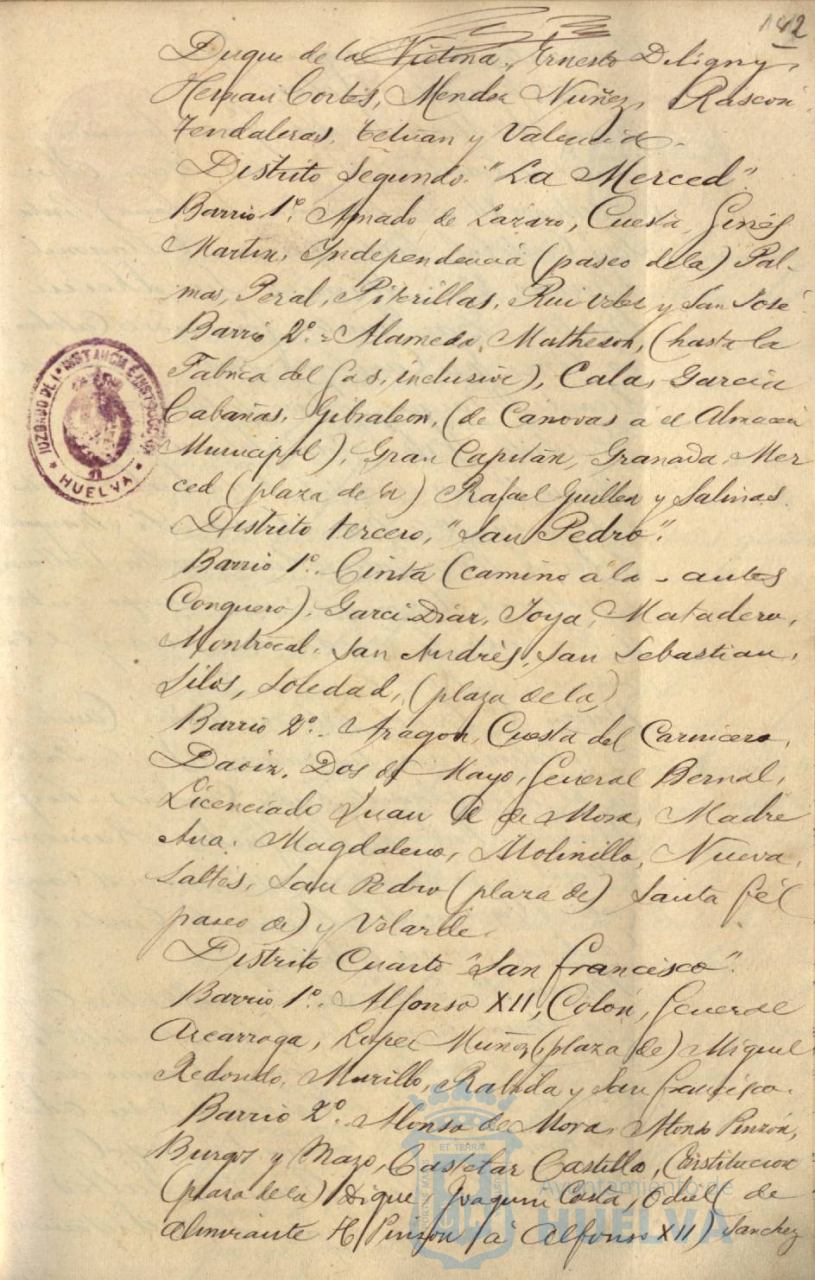 142
Duque de la Victoria, Ernesto Deligny,
Hernan Cortés, Mendez Nuñez, Rascón
Tendaleras, Tetuan y Valencia.
Distrito Segundo. "La Merced".
Barrio 1º. Amado de Lazaro, Cuesta, Ginés
Martin, Independencia (paseo de la) Pal-
mas, Peral, Piterillas, Rui Velez y San José.
Barrio 2º.- Alameda, Matheson, (hasta la
Fabrica del Gas, inclusive), Cala, Garcia
Cabañas, Gibraleon, (de Canovas á el Almacen
Municipal), Gran Capitán, Granada, Mer
ced (plaza de la) Rafael Guillen y Salinas.
Distrito tercero, "San Pedro".
Barrio 1º. Cinta (camino á la - antes
Conquero), Garci Diaz, Joya, Matadero,
Montrocal, San Andrès, San Sebastian,
Silos, Soledad, (plaza de la)
Barrio 2º. Aragon, Cuesta del Carnicero,
Daoiz, Dos de Mayo, General Bernal,
Licenciado Juan A de Mora, Madre
Ana, Magdalena, Molinillo, Nueva,
Saltés, San Pedro (plaza de) Santa fé (
paseo de) y Velarde.
Distrito Cuarto "San Francisco".
Barrio 1º. Alfonso XII, Colón, General
Azcarraga, Lopez Muñoz (plaza de) Miguel
Redondo, Murillo, Rabida y San francisco.
Barrio 2º. Alonso de Mora, Alonso Pinzón,
Burgos y Mazo, Castelar Castillo, Constitucion
(plaza de la) Dique, Joaquin Costa, Odiel (de
Almirante H Pinzon á Alfonso XII) Sanchez
JUZGADO DE 1ª INSTANCIA E INSTRUCCION
* HUELVA *
Ayuntamiento de
HUELVA